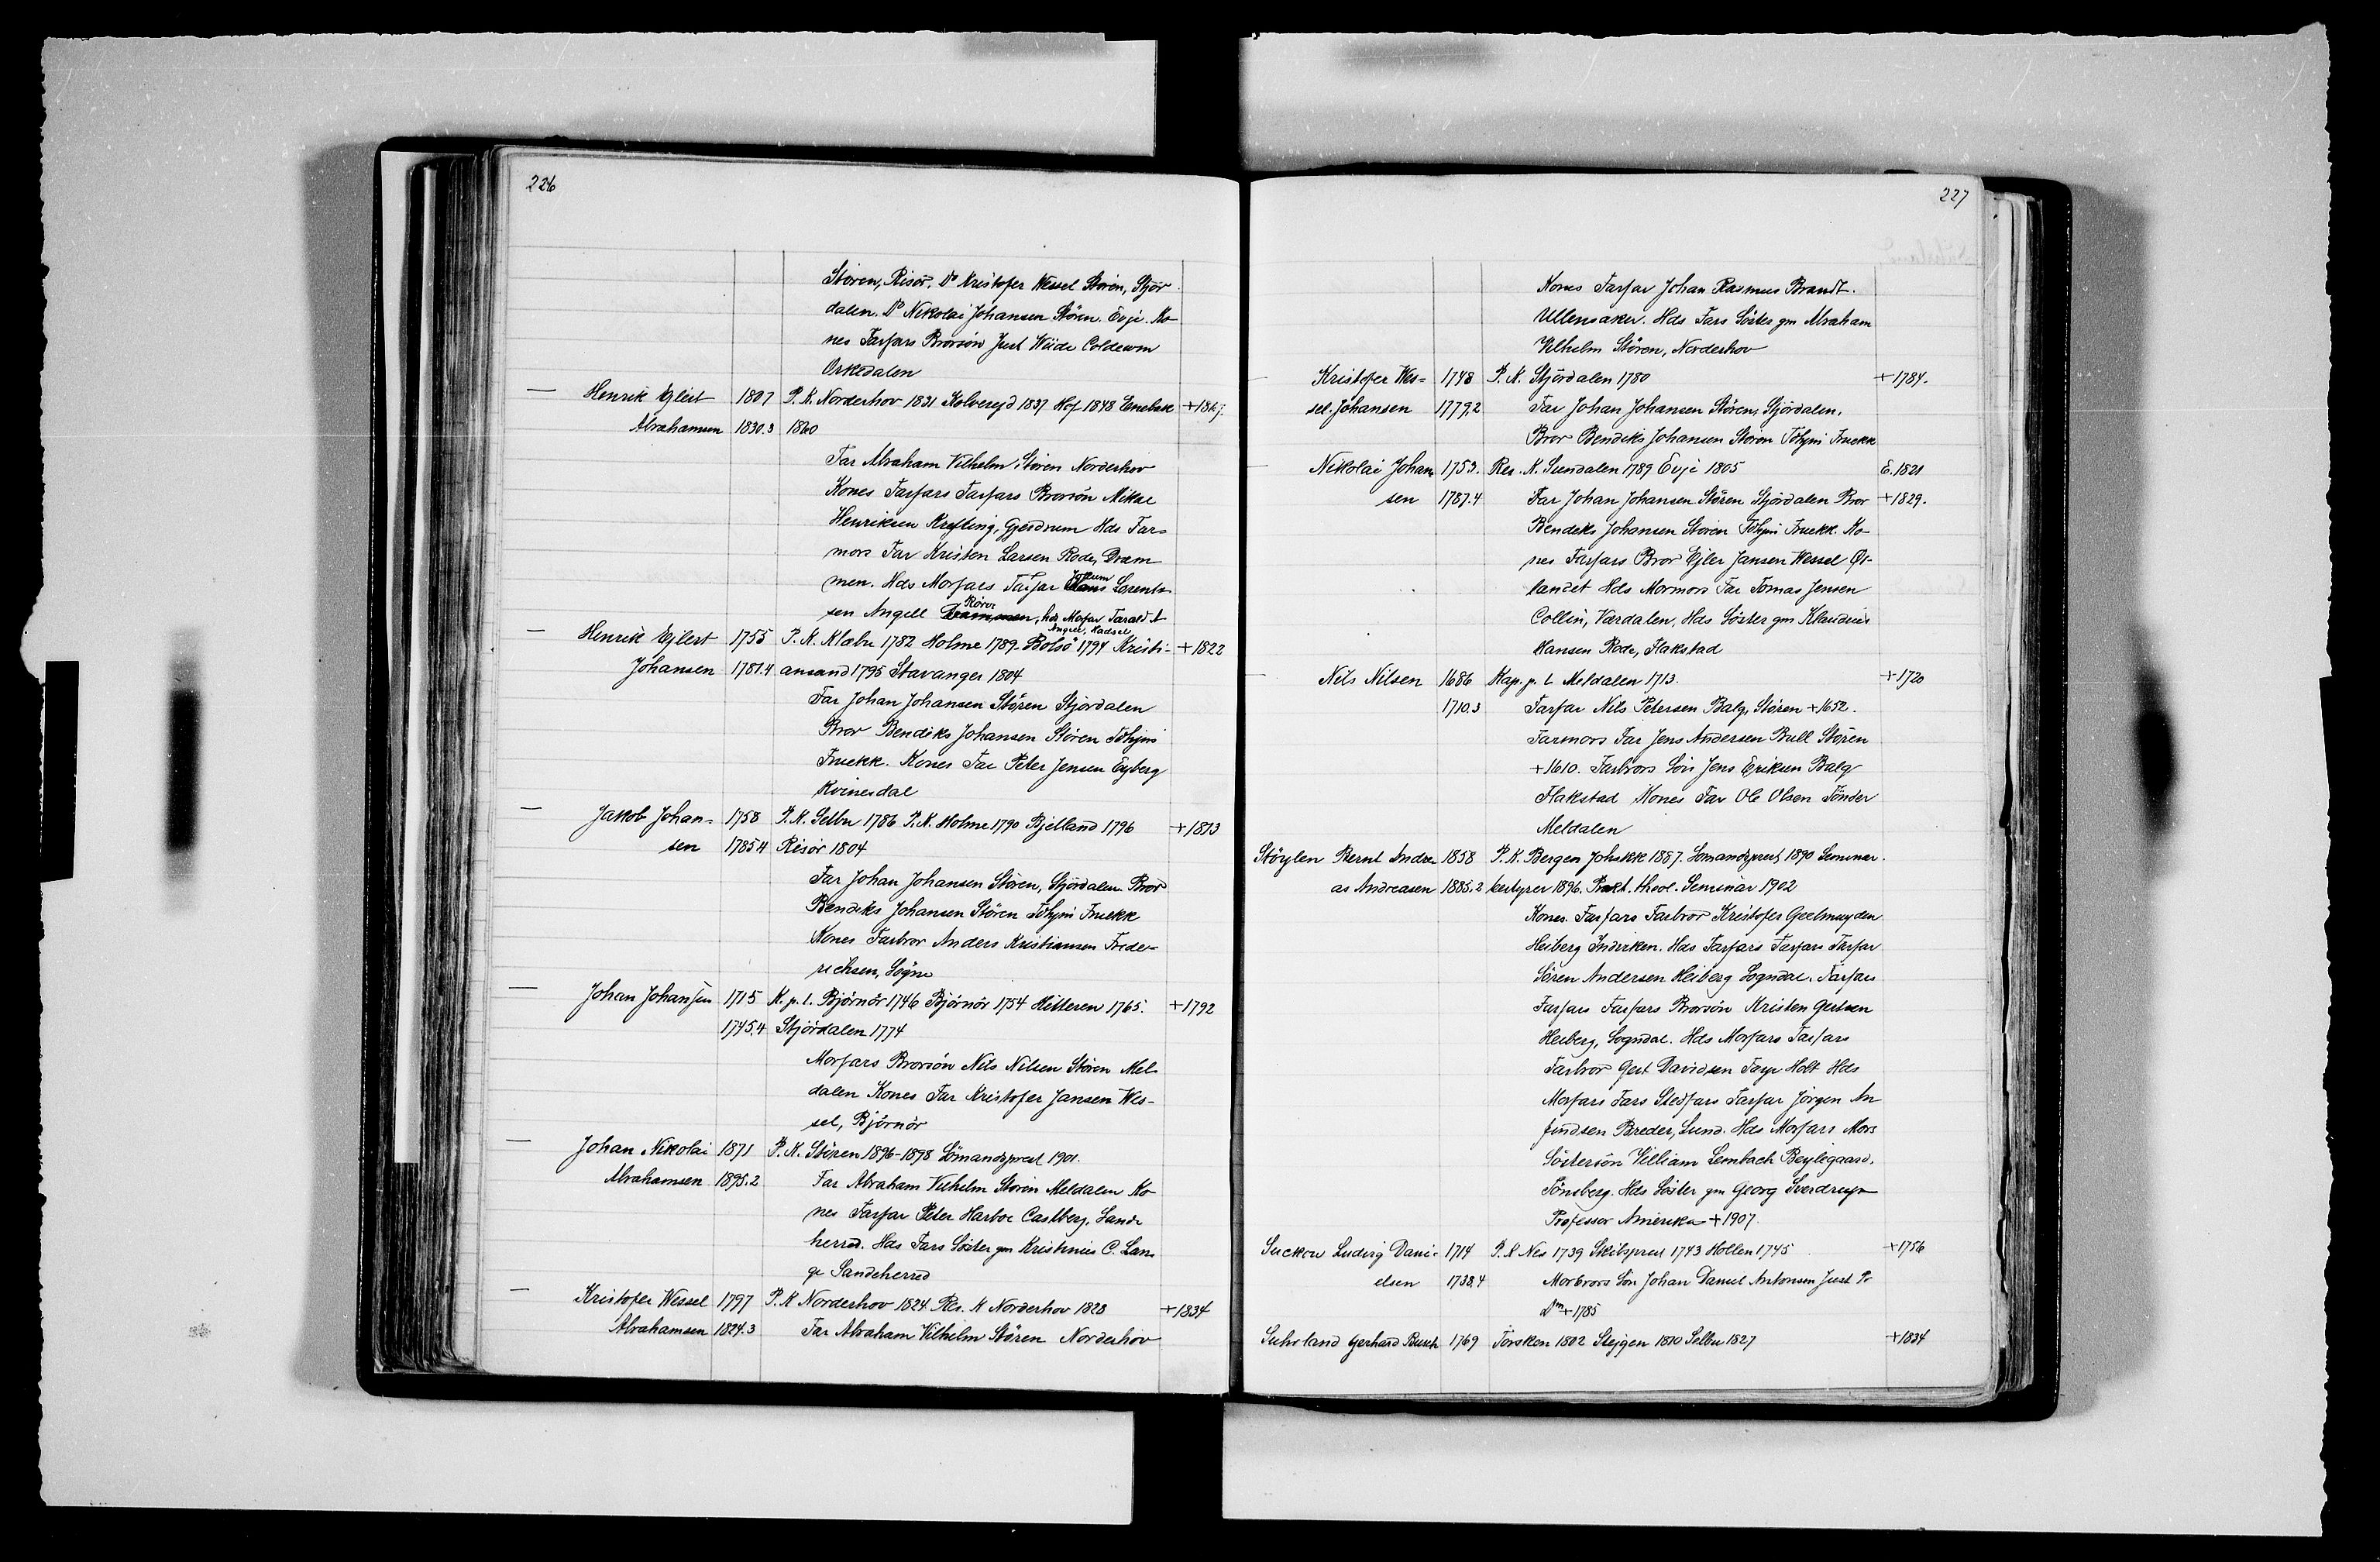 226
Støren, Risör. Do Kristofer Wessel Støren, Stjör
dalen. Do Nikolai Johansen Støren. Evje. Ko-
nes Farfars Brorsön Just Wiide Coldevin
Orkedalen
— Henrik Ejlert 1807 P. K. Norderhov 1831 Kolvereid 1837 Hof 1848 Enebak
Abrahamsen 1830.3 1860
Far Abraham Vilhelm Støren Norderhov
Kones Farfars Farfars Brorsön Mikae
Henriksen Krefting, Gjerdrum Hds Far-
mors Far Kristen Larsen Rode, Dram
men. Hds Morfars Farfar Jokum Lorents-
sen Angell Röros, hds Morfar Tarald A
Angell, Hadsel
— Henrik Ejlert 1755 P. K. Klæbu 1782 Holme 1789. Bolsö 1794 Kristi- +1822
Johansen 1781.4 ansand 1795 Stavanger 1804
Far Johan Johansen Støren Stjördalen
Bror Bendiks Johansen Støren Tthjm
Fruekk. Kones Far Peter Jensen Eyberg
Kvinesdal
— Jakob Johan- 1758 P. K. Selbu 1786 P. K. Holme 1790 Bjelland 1796 +1813
sen 1785.4 Risör 1804
Far Johan Johansen Støren, Stjördalen Bror
Bendiks Johansen Støren Tthjm Fruekk
Kones Farbror Anders Kristiansen Frede-
richsen, Sögne
— Johan Johansen 1715 K. p. l. Björnör 1746 Björnör 1754 Hitteren 1765. +1792
1745.4 Stjördalen 1774
Morfars Brorsön Nils Nilsen Støren Mel-
dalen Kones Far Kristofer Jansen Wes-
sel, Björnör
— Johan Nikolai 1871 P. K. Støren 1896-1898 Sömandsprest 1901.
Abrahamsen 1895.2 Far Abraham Vilhelm Støren Meldalen Ko-
nes Farfar Peter Harboe Castberg, Sande
herred. Hds Fars Söster gm Kristinius C. Lan
ge Sandeherred
— Kristofer Wessel 1797 P. K Norderhov 1824 Res. K Norderhov 1828 +1834
Abrahamsen 1824.3 Far Abraham Vilhelm Støren Norderhov
227
Kones Farfar Johan Rasmus Brandt.
Ullensaker. Hds Fars Söster gm Abraham
Vilhelm Støren, Norderhov
— Kristofer Wes= 1748 P. K. Stjördalen 1780 +1784.
sel. Johansen 1779.2 Far Johan Johansen Støren, Stjördalen.
Bror Bendiks Johansen Støren Tthjm Fruekk
— Nikolai Johan 1753. Res. K. Sundalen 1789 Evje 1805 E. 1821
sen 1787.4 Far Johan Johansen Støren Stjördalen Bror +1829.
Bendiks Johansen Støren Tthjm Fruekk. Ko-
nes Farfars Bror Ejler Jansen Wessel Ør-
landet Hds Mormors Far Tomas Jensen
Collin, Værdalen. Hds Söster gm Klaudius
Hansen Rode, Flakstad
— Nils Nilsen 1686 Kap. p. l. Meldalen 1713. +1720
1710.3 Farfar Nils Petersen Balg, Støren +1652.
Farmors Far Jens Andersen Bull Støren
+1610. Farbrors Sön Jens Eriksen Balg
Flakstad Kones Far Ole Olsen Tönder
Meldalen
Støylen Bernt Andre 1858 P. K. Bergen Johskk 1887. Sömandsprest 1890 Seminar.
as Andreasen 1885.2 bestyrer 1896. Prakt. theol. Seminar 1902
Kones Farfars Farbror Kristofer Geelmuyden
Heiberg Indviken. Hds Farfars Farfars Farfar
Sören Andersen Heiberg Sogndal. Farfars
Farfars Farfars Brorsön Kristen Gertsen
Heiberg, Sogndal. Hds Morfars Farfars
Farbror Gert Davidsen Faye Holt Hds
Morfars Fars Stedfars Farfar Jörgen An
findsen Breder, Lund. Hds Morfars Mors
Söstersön Villiam Lembach Beylegaard,
Tönsberg. Hds Söster gm Georg Sverdrup
Professor Amerika +1907.
Suckow Ludvig Dani- 1714 P. K Nes 1739 Skibsprest 1743 Hollen 1745 +1756
elsen 1738.4 Morbrors Sön Johan Daniel Antonsen Just
+1785
Suhrland Gerhard Busch 1769 Torsken 1802 Stejgen 1810 Selbu 1827 +1834